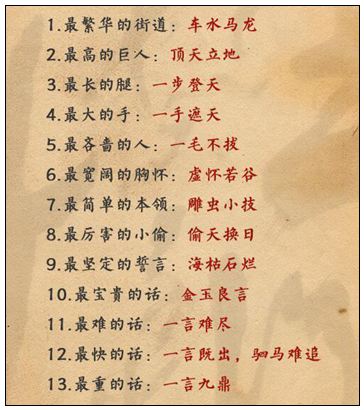 1.最繁华的街道：车水马龙
2.最高的巨人：顶天立地
3.最长的腿：一步登天
4.最大的手：一手遮天
5.最吝啬的人：一毛不拔
6.最宽阔的胸怀：虚怀若谷
7.最简单的本领：雕虫小技
8.最厉害的小偷：偷天换日
9.最坚定的誓言：海枯石烂
10.最宝贵的话：金玉良言
11.最难的话：一言难尽
12.最快的话：一言既出，驷马难追
13.最重的话：一言九鼎